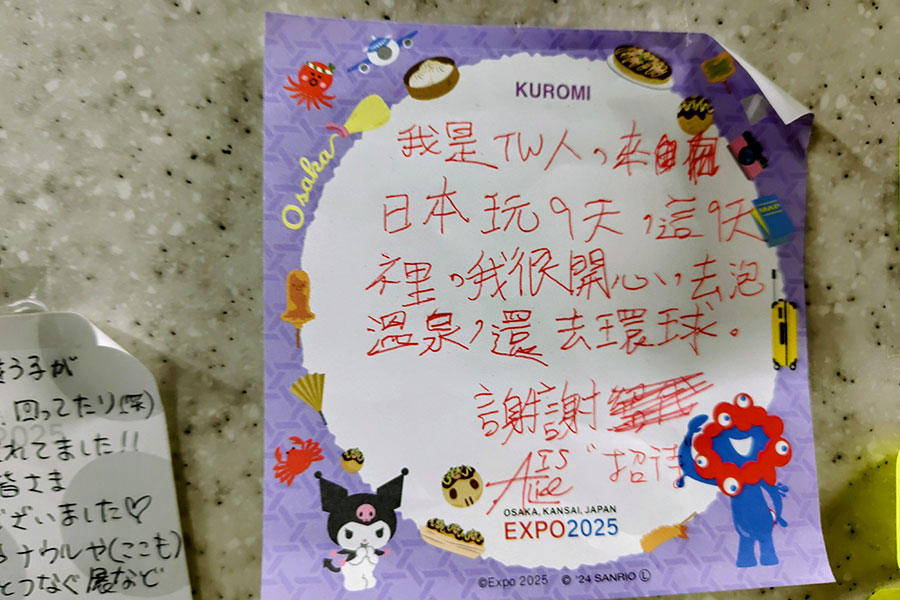 KUROMI
Osaka
我是TW人，來
日本玩9天，這9天
裡，我很開心，去泡
溫泉，還去環球。
謝謝
招待
IS
Alice
OSAKA, KANSAI, JAPAN
EXPO2025
©Expo 2025 © '24 SANRIO Ⓛ
う子が
回ってたり(笑)
れてました!!
皆さま
ございました♡
ナウルや(ここも)
とつなぐ展など